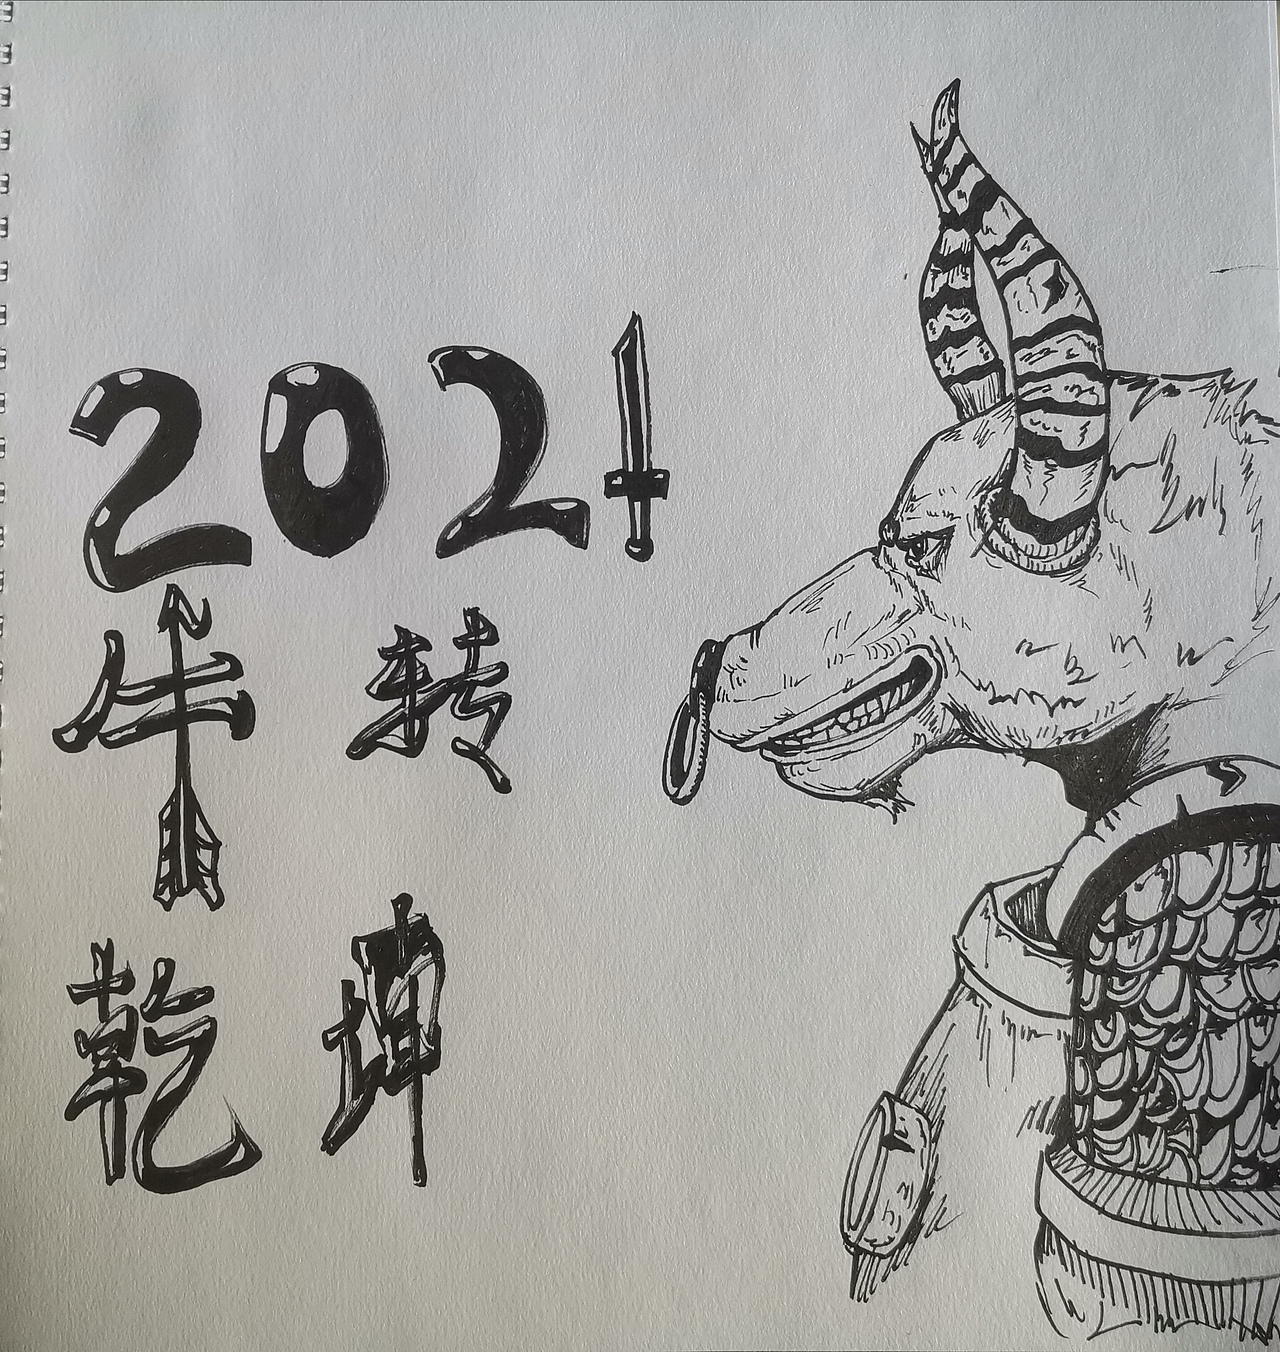 2021
牛转
乾坤